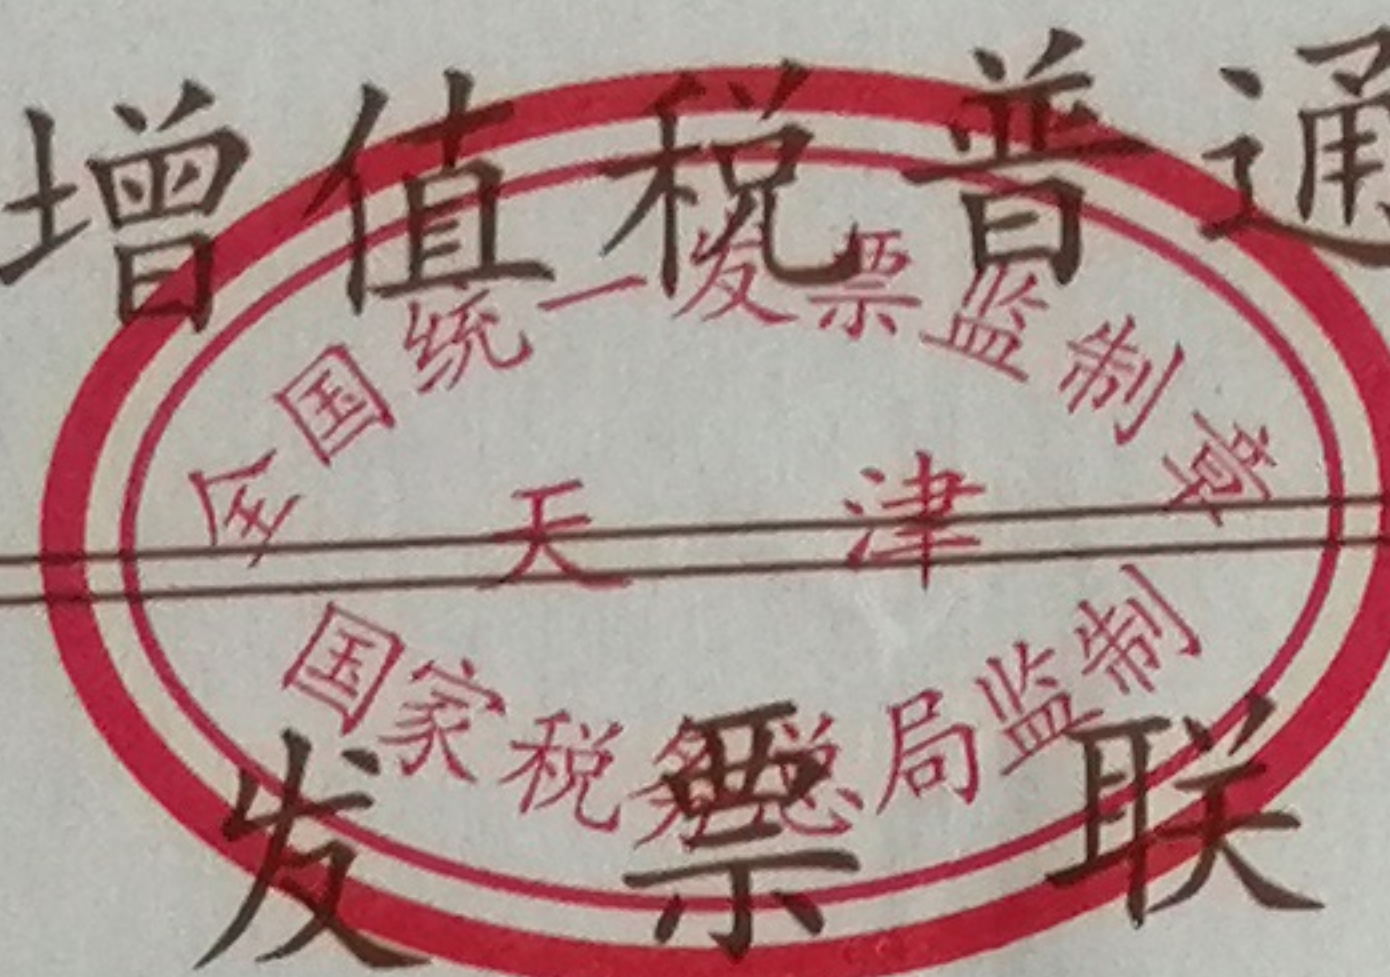 增值税普通
全国统一发票监制章
天津
国家税务总局监制
发票联